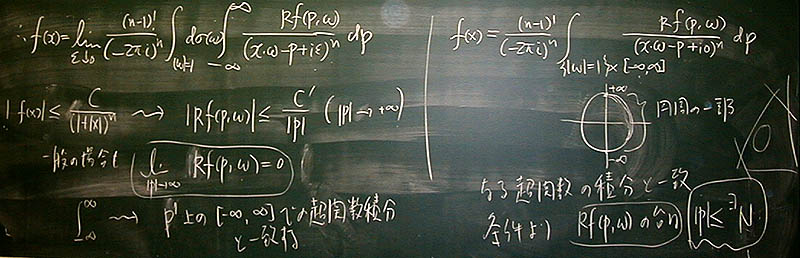 ∴ f(x) = lim_{ε↓0} (n-1)!/(-2πi)^n ∫_{|ω|=1} dσ(ω) ∫_{-∞}^{∞} Rf(p,ω)/(x·ω-p+iε)^n dp
|f(x)| ≤ C/(1+|x|)^n ⇝ |Rf(p,ω)| ≤ C'/|p| (|p|→+∞)
一般の場合も lim_{|p|→∞} Rf(p,ω) = 0
∫_{-∞}^{∞} ⇝ P^1 上の [-∞,∞] での超関数積分
と一致
f(x) = (n-1)!/(-2πi)^n ∫_{{|ω|=1}×[-∞,∞]} Rf(p,ω)/(x·ω-p+i0)^n dp
+∞
円周の一部
-∞
なる超関数の積分と一致
条件より Rf(p,ω) の台 |p| ≤ ∃N